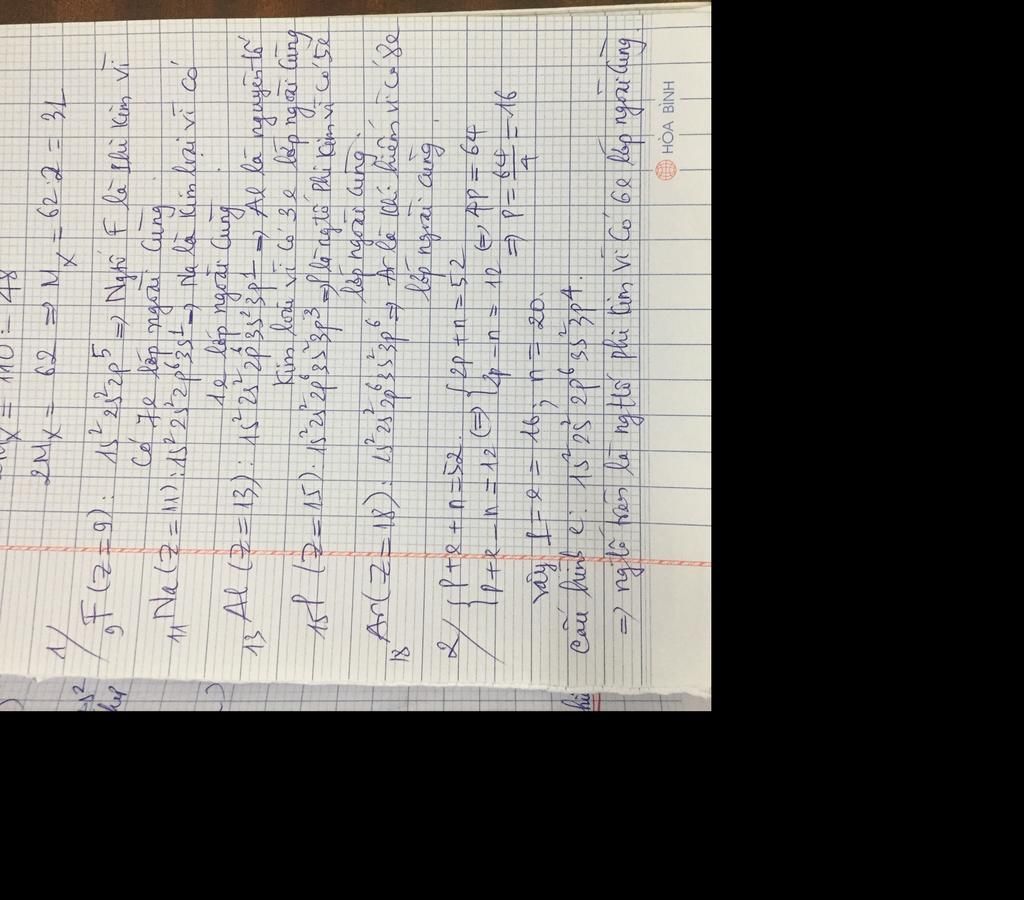 2Mx = 62 => Mx = 62:2 = 31
1/
9F (Z=9): 1s² 2s² 2p⁵ => Ngtố F là phi kim vì
có 7e lớp ngoài cùng
11Na (Z=11): 1s² 2s² 2p⁶ 3s¹ => Na là kim loại vì có
1e lớp ngoài cùng
13Al (Z=13): 1s² 2s² 2p⁶ 3s² 3p¹ => Al là nguyên tố
kim loại vì có 3e lớp ngoài cùng
15P (Z=15): 1s² 2s² 2p⁶ 3s² 3p³ => P là ngtố phi kim vì có 5e
lớp ngoài cùng.
18Ar (Z=18): 1s² 2s² 2p⁶ 3s² 3p⁶ => Ar là khí hiếm vì có 8e
lớp ngoài cùng.
2/ { p+e+n=52 { 2p+n=52
{ p+e-n=12 (=) { 2p-n=12 (=) 4p=64
=> p = 64/4 = 16
Vậy p=e=16; n=20.
Cấu hình e: 1s² 2s² 2p⁶ 3s² 3p⁴.
=> ngtố trên là ngtố phi kim vì có 6e lớp ngoài cùng.
HÒA BÌNH